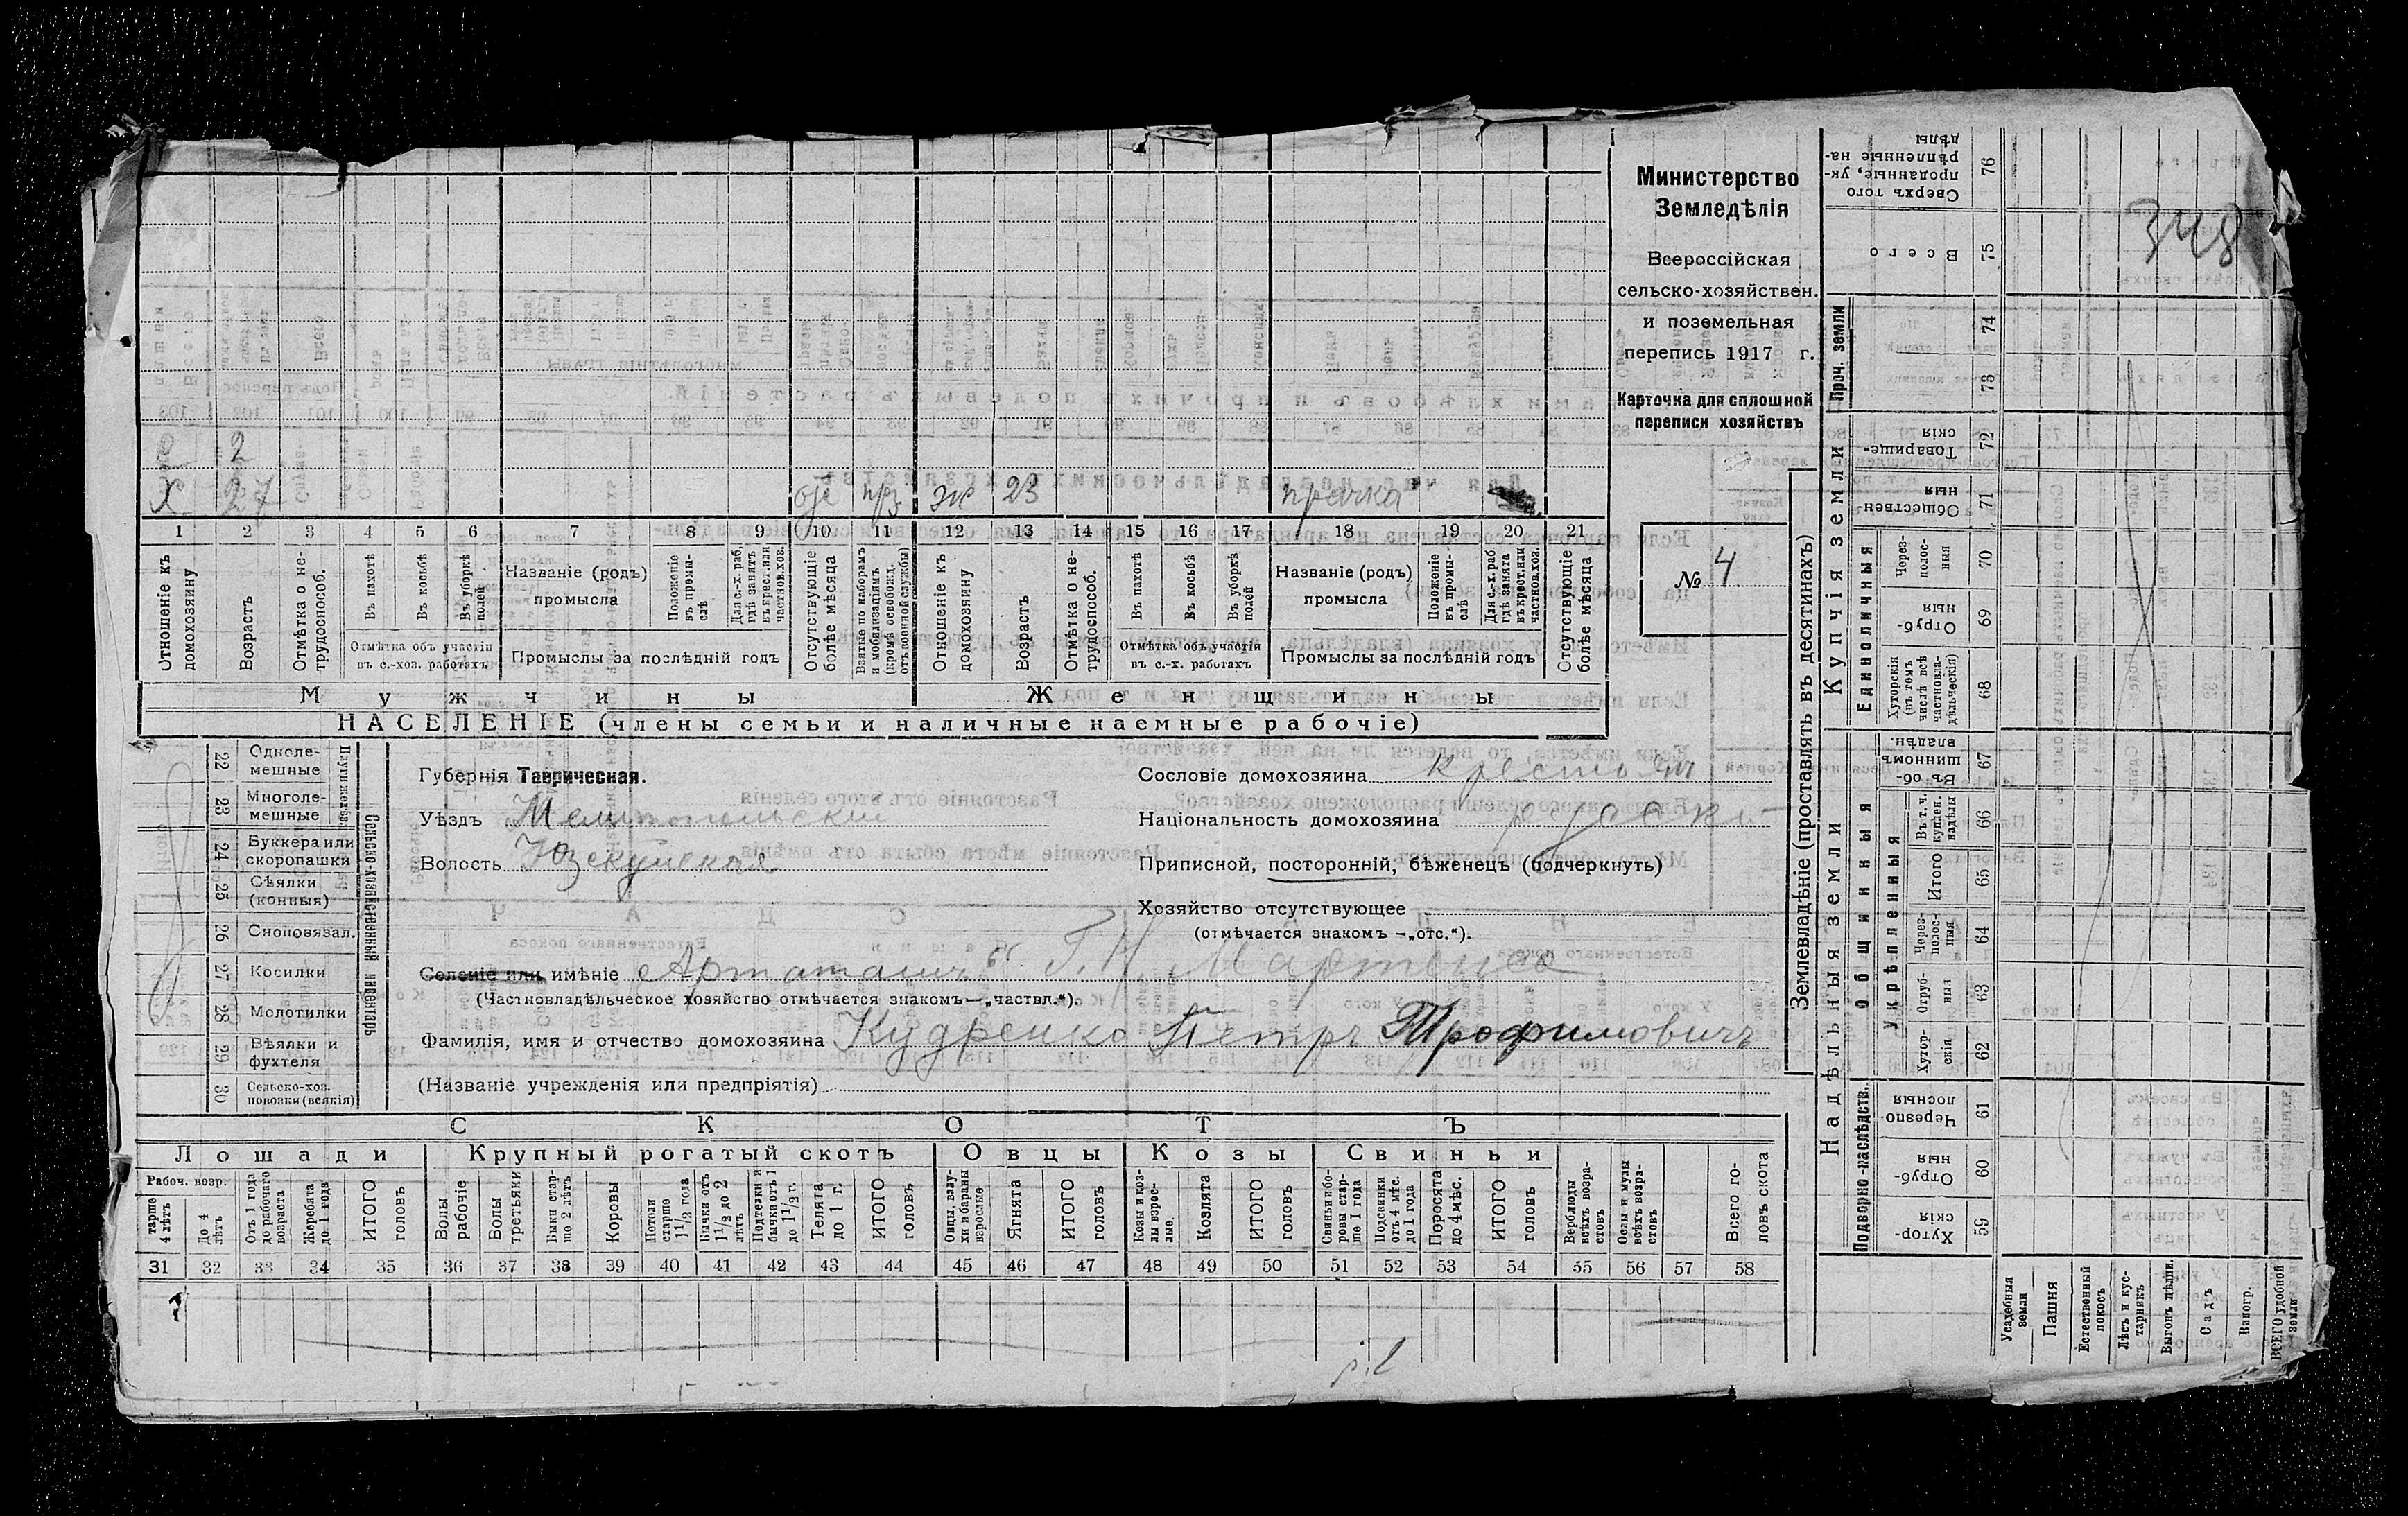 348
Министерство
Земледѣлія
Всероссійская
сельско-хозяйствен.
и поземельная
перепись 1917 г.
Карточка для сплошной
переписи хозяйствъ
№ 4
с 2
Х 27 пр. ж 23 прачка
1 2 3 4 5 6 7 8 9 10 11 12 13 14 15 16 17 18 19 20 21
Отношеніе къ домохозяину
Возрастъ
Отмѣтка о не-трудоспособ.
Въ пахотѣ
Въ косьбѣ
Въ уборкѣ полей
Отмѣтка объ участіи
въ с.-хоз. работахъ
Названіе (родъ)
промысла
Положеніе въ промы-слѣ
Для с.-х. раб. гдѣ занятъ въ крест. или частнов. хоз.
Промыслы за послѣдній годъ
Отсутствующіе болѣе мѣсяца
Взятые по наборамъ и мобилизаціямъ (кромѣ освобожд. отъ военной службы)
Отношеніе къ домохозяину
Возрастъ
Отмѣтка о не-трудоспособ.
Въ пахотѣ
Въ косьбѣ
Въ уборкѣ полей
Отмѣтка объ участіи
въ с.-х. работахъ
Названіе (родъ)
промысла
Положеніе въ промы-слѣ
Для с.-х. раб. гдѣ занята въ крест. или частнов. хоз.
Промыслы за послѣдній годъ
Отсутствующіе болѣе мѣсяца
Мужчины Женщины
НАСЕЛЕНІЕ (члены семьи и наличные наемные рабочіе)
22 Одноле-мешные
23 Многоле-мешные
24 Буккера или скоропашки
25 Сѣялки (конныя)
26 Сноповязал.
27 Косилки
28 Молотилки
29 Вѣялки и фухтеля
30 Сельско-хоз. повозки (всякія)
Сельско-хозяйственный инвентарь
Губернія Таврическая.
Уѣздъ Мелитопольскій
Волость Юзкуйская
Сословіе домохозяина крестьян
Національность домохозяина русскі
Приписной, посторонній, бѣженецъ (подчеркнуть)
Хозяйство отсутствующее
(отмѣчается знакомъ —„отс.“).
Селеніе или имѣніе Г. Н. Мартенса
(Частновладѣльческое хозяйство отмѣчается знакомъ—„частвл.“).
Фамилія, имя и отчество домохозяина Кудренко Петръ Трофимовичъ
(Названіе учрежденія или предпріятія)
СКОТЪ
Лошади Крупный рогатый скотъ Овцы Козы Свиньи
Рабоч. возр.
старше 4 лѣтъ
До 4 лѣтъ
Отъ 1 года до рабочаго возраста
Жеребята до 1 года
ИТОГО головъ
Волы рабочіе
Волы третьяки
Быки стар-ше 2 лѣтъ
Коровы
Нетели старше 1 1/2 года
Бычки отъ 1 1/2 до 2 лѣтъ
Подтелки и бычки отъ 1 до 1 1/2 г.
Телята до 1 г.
ИТОГО головъ
Овцы, валу-хи и бараны взрослые
Ягнята
ИТОГО головъ
Козы и коз-лы взрос-лые.
Козлята
ИТОГО головъ
Свиньи и бо-ровы стар-ше 1 года
Подсвинки отъ 4 мѣс. до 1 года
Поросята до 4 мѣс.
ИТОГО головъ
Верблюды всѣхъ возра-стовъ
Ослы и мулы всѣхъ возра-стовъ
Всего го-ловъ скота
31 32 33 34 35 36 37 38 39 40 41 42 43 44 45 46 47 48 49 50 51 52 53 54 55 56 57 58
Землевладѣніе (проставлять въ десятинахъ)
Надѣльныя земли
Купчія земли
Проч. земли
Подворно-наслѣдств.
Общинныя
Укрѣпленныя
Единоличныя
Сверхъ того проданные, ук-рѣпленные на-дѣлы 76
Всего 75
74
73
Товарище-скія 72
Обществен-ныя 71
Через-полос-ныя 70
Отруб-ныя 69
Хуторскія (въ томъ числѣ всѣ частновла-дѣльческія) 68
Въ об-щинномъ владѣн. 67
Въ т. ч. куплен. надѣлы 66
Итого 65
Через-полос-ныя 64
Отруб-ныя 63
Хутор-скія 62
Черезпо-лосныя 61
Отруб-ныя 60
Хутор-скія 59
Усадебныя земли
Пашня
Естественный покосъ
Лѣсъ и кус-тарникъ
Выгонъ цѣлин.
Садъ
Виногр.
ВСЕГО удобной земли